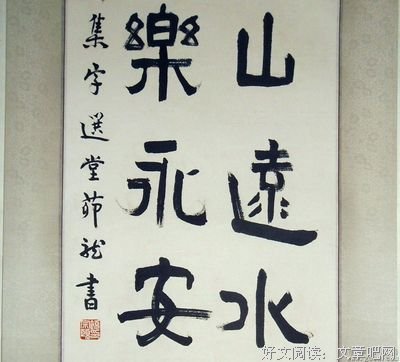 山遠水
樂永安
集字選堂茆龍書
好文阅读：文章吧网